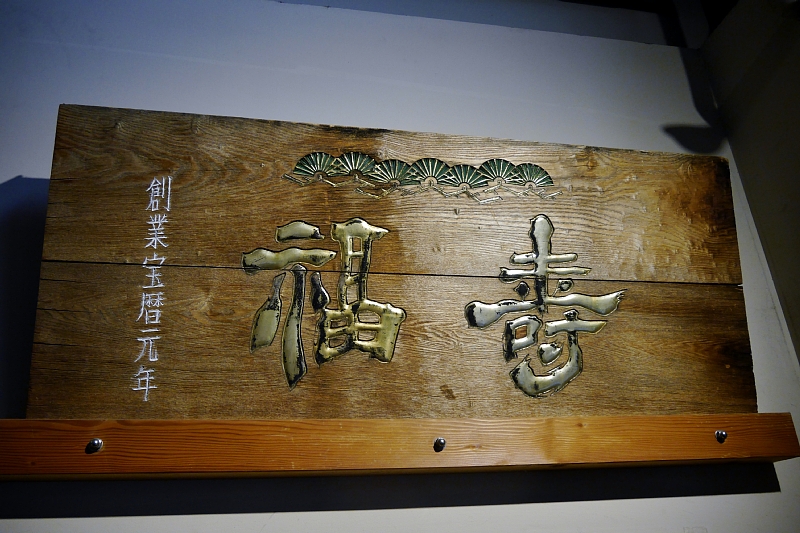 寿福
創業宝暦元年